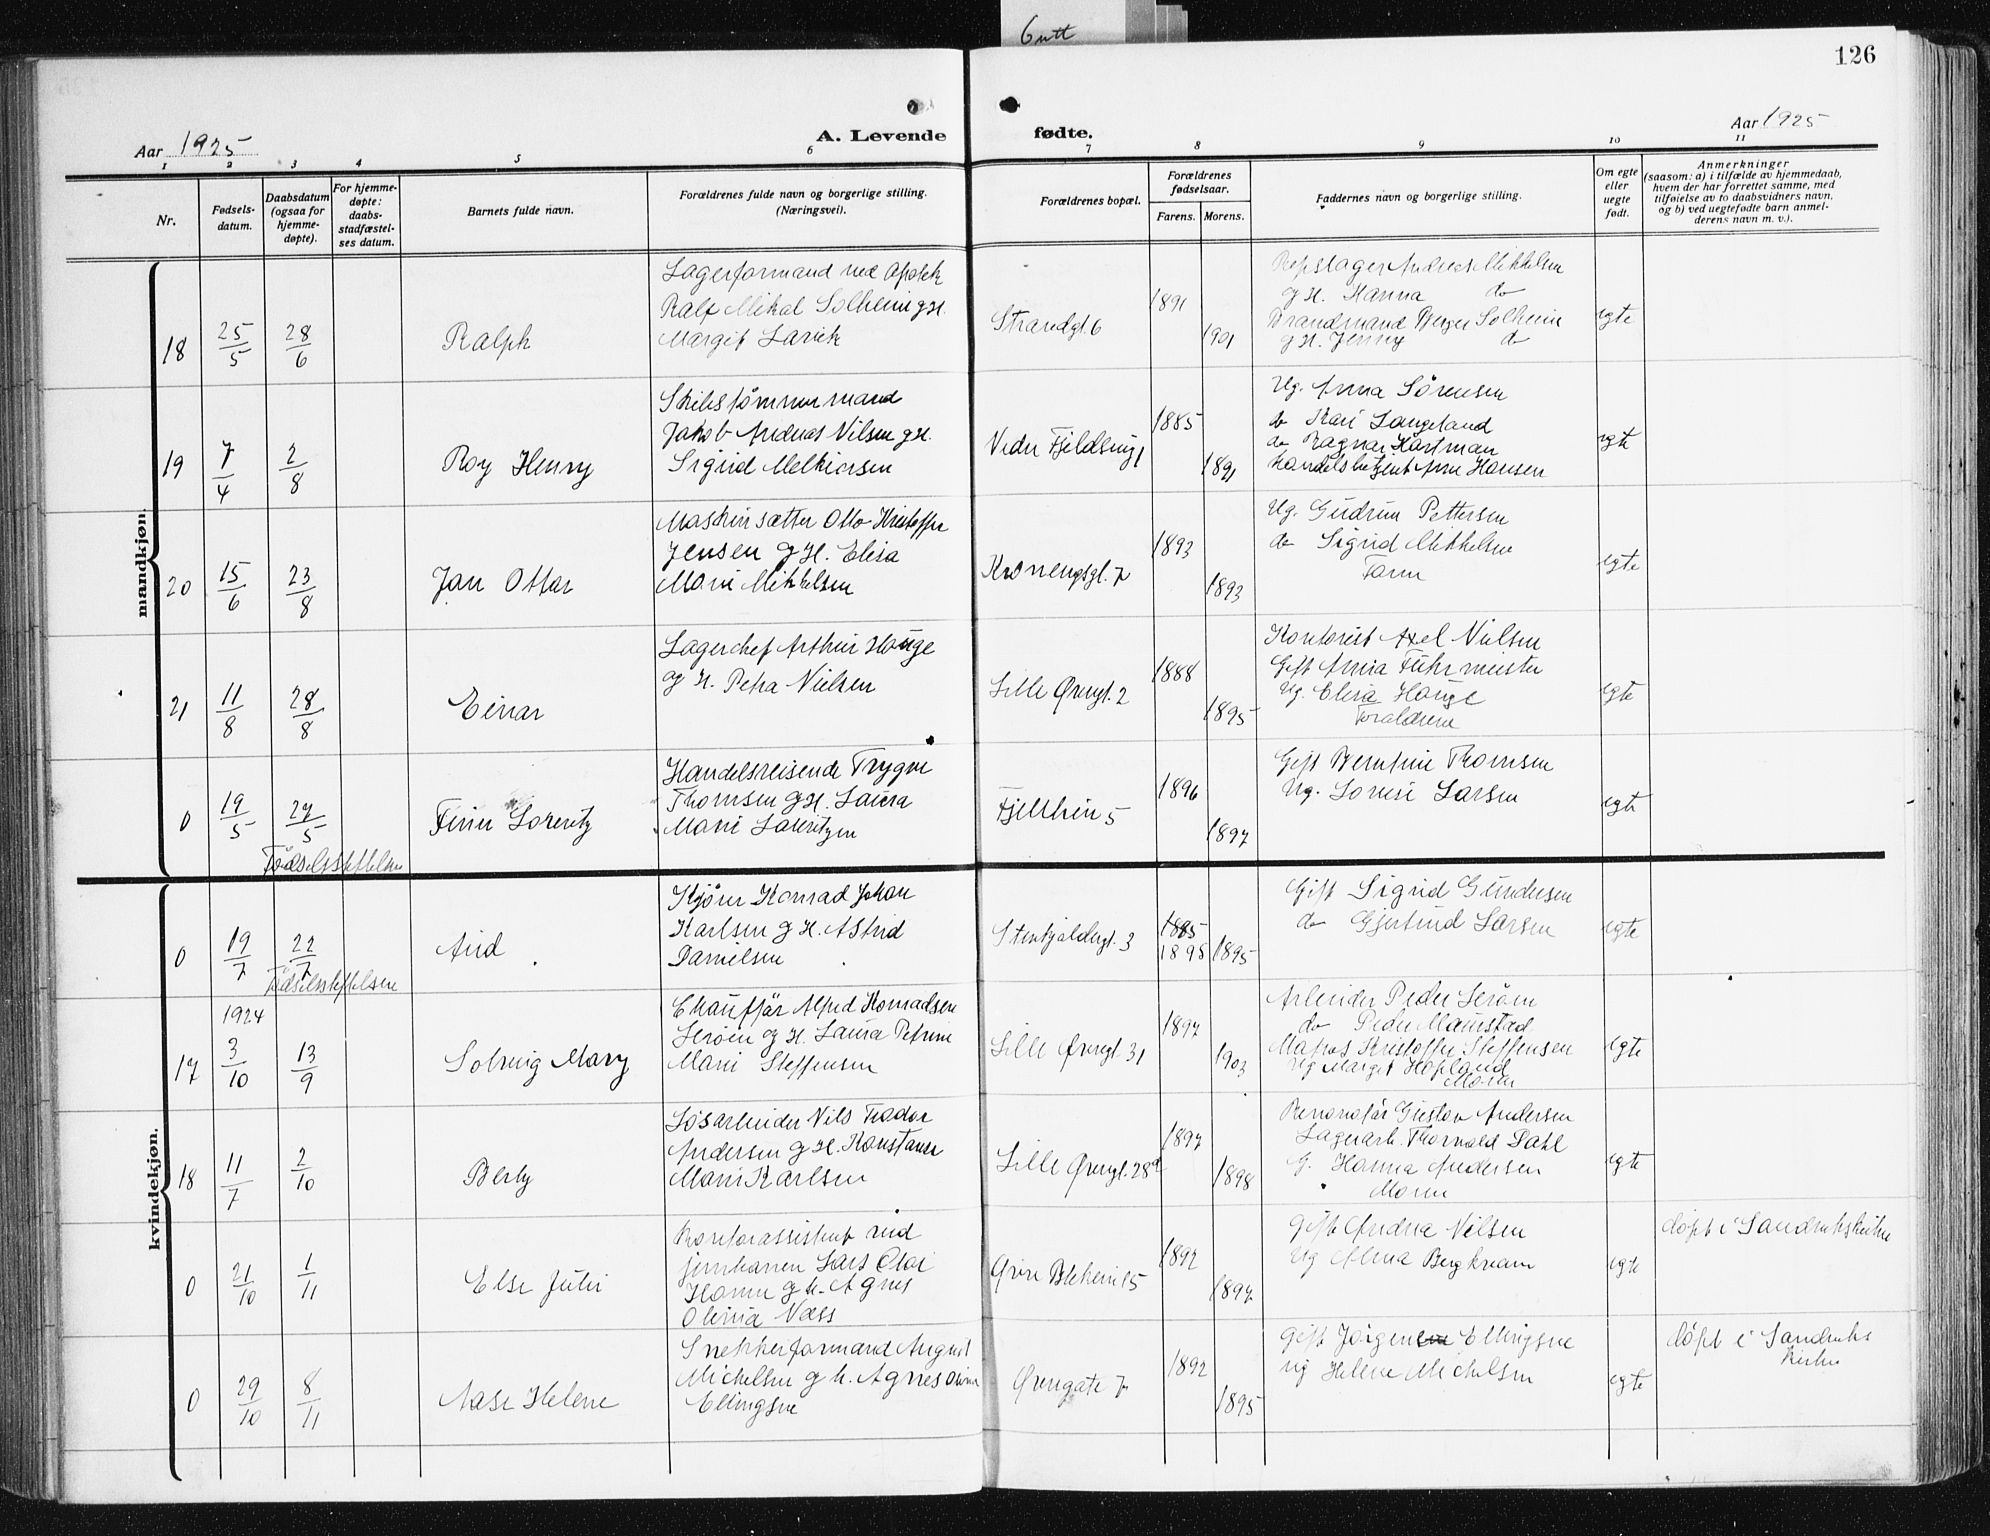 6 utt
126
Aar 1925
A. Levende fødte.
Aar 1925
1 2 3 4 5 6 7 8 9 10 11
Nr.
Fødsels-
datum.
Daabsdatum
(ogsaa for
hjemme-
døpte).
For hjemme-
døpte:
daabs-
stadfæstel-
ses datum.
Barnets fulde navn.
Forældrenes fulde navn og borgerlige stilling.
(Næringsvei).
Forældrenes bopæl.
Forældrenes
fødselsaar.
Farens. Morens.
Faddernes navn og borgerlige stilling.
Om egte
eller
uegte
født.
Anmerkninger
(saasom: a) i tilfælde av hjemmedaab,
hvem der har forrettet samme, med
tilføielse av to daabsvidners navn,
og b) ved uegtefødte barn anmel-
derens navn m. v.).
mandkjøn.
18
25/5
28/6
Ralph
Lagerformand ved Apotek
Ralf Mikal Solheim g H.
Margit Larvik
Strandgt. 6
1891
1901
Repslager Andreas Mikkelsen
g H. Hanna do
Brandmand Berger Solheim
g H. Jenny do
egte
19
7/4
2/8
Roy Henry
Skibstømmermand
Jakob Andreas Nilsen g H.
Sigrid Melkiorsen
Vedre Fjeldsmug 1
1885
1891
Ug. Anna Sørensen
do Kari Langeland
do Ragnar Hartman
Handelsbetjent Arne Hansen
egte
20
15/6
23/8
Jan Ottar
Maskinsætter Otto Kristoffer
Jensen g H. Elisa
Marie Mikkelsen
Kronengsgt. 7
1893
1893
Ug. Gudrun Pettersen
do Sigrid Mikkelsen
Faren
egte
21
11/8
28/8
Einar
Lagerchef Arthur Hauge
og H. Petra Nielsen
Lille Øvregt. 2
1888
1895
Kontorist Axel Nielsen
Gift Anna Fuhrmeister
Ug. Elisa Hauge
Forældrene
egte
0
19/5
27/5
Fødselsstiftelsen
Finn Lorentz
Handelsreisende Trygve
Thomsen g H. Laura
Marie Lauritzen
Fjellhein 5
1896
1897
Gift Berntine Thomsen
Ug. Lovise Larsen
egte
kvindekjøn.
0
19/7
22/7
Fødselsstiftelsen
Aud
Kjører Konrad Johan
Karlsen g H. Astrid
Danielsen
Stenkjeldergt. 3
1885
1895
1895
Gift Sigrid Gundersen
do Gjertrud Larsen
egte
17
1924
3/10
13/9
Solveig Mary
Chauffør Alfred Konradsen
Jerøen og H. Laura Petrine
Marie Steffensen
Lille Øvregt. 31
1897
1903
Arbeider Peder Jerøen
do Peder
Matros Kristoffer Steffensen
Ug Margit Hopland
Moren
egte
18
11/7
2/10
Berly
Løsarbeider Nils Teodor
Andersen g H. Konstance
Marie Karlsen
Lille Øvregt. 28a
1897
1898
Gustav Andersen
Lagerarb. Thorvald Dahl
G. Hanna Andersen
Moren
egte
0
21/10
1/11
Else Julie
Kontorassistent ved
jernbanen Lars Olai
g h. Agnes
Olevia Næss
Øvre Blekevei 5
1892
1897
Gift Andrea Nilsen
Ug Alma Bergkream
egte
døpt i Sandvikskirken
0
29/10
8/11
Aase Helene
Snekkerformand August
Michelsen g h. Agnes
Ellingsen
Øvregate 7
1892
1895
Gift Jørgen Ellingsen
ug Helene Michelsen
egte
døpt i Sandviks
kirke